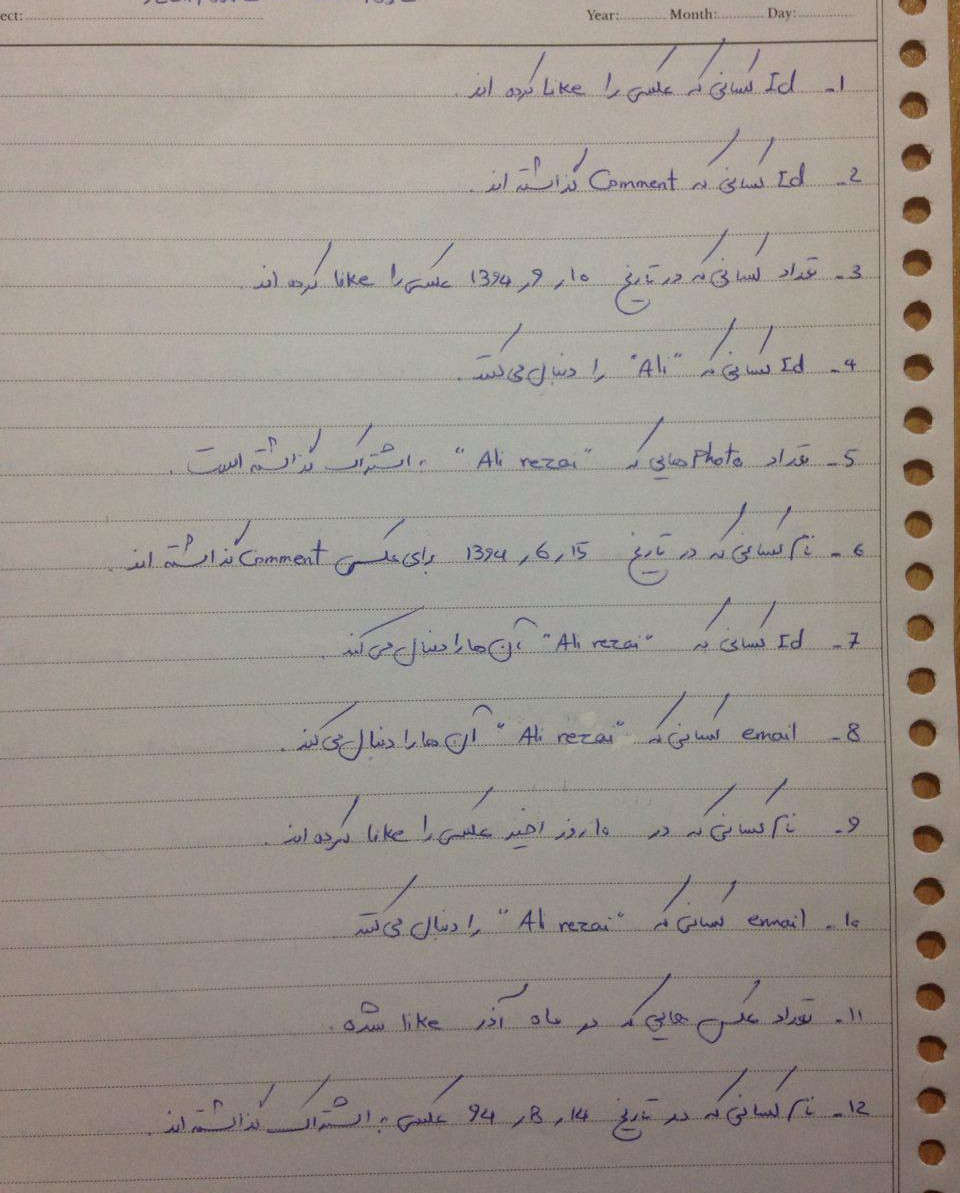 ect: Year: Month: Day:
1- Id کسانی که عکسی را like کرده اند.
2- Id کسانی که Comment گذاشته اند.
3- تعداد کسانی که در تاریخ 10, 9, 1394 عکسی را like کرده اند.
4- Id کسانی که "Ali" را دنبال می کنند.
5- تعداد Photo هایی که "Ali rezai" به اشتراک گذاشته است.
6- نام کسانی که در تاریخ 15, 6, 1394 برای عکسی Comment گذاشته اند.
7- Id کسانی که "Ali rezai" آن ها را دنبال می کند.
8- email کسانی که "Ali rezai" آن ها را دنبال می کند.
9- نام کسانی که در 10 روز اخیر عکسی را like کرده اند.
10- email کسانی که "Ali rezai" را دنبال می کنند
11- تعداد عکس هایی که در ماه آذر like شده.
12- نام کسانی که در تاریخ 14, 8, 94 عکسی به اشتراک گذاشته اند.